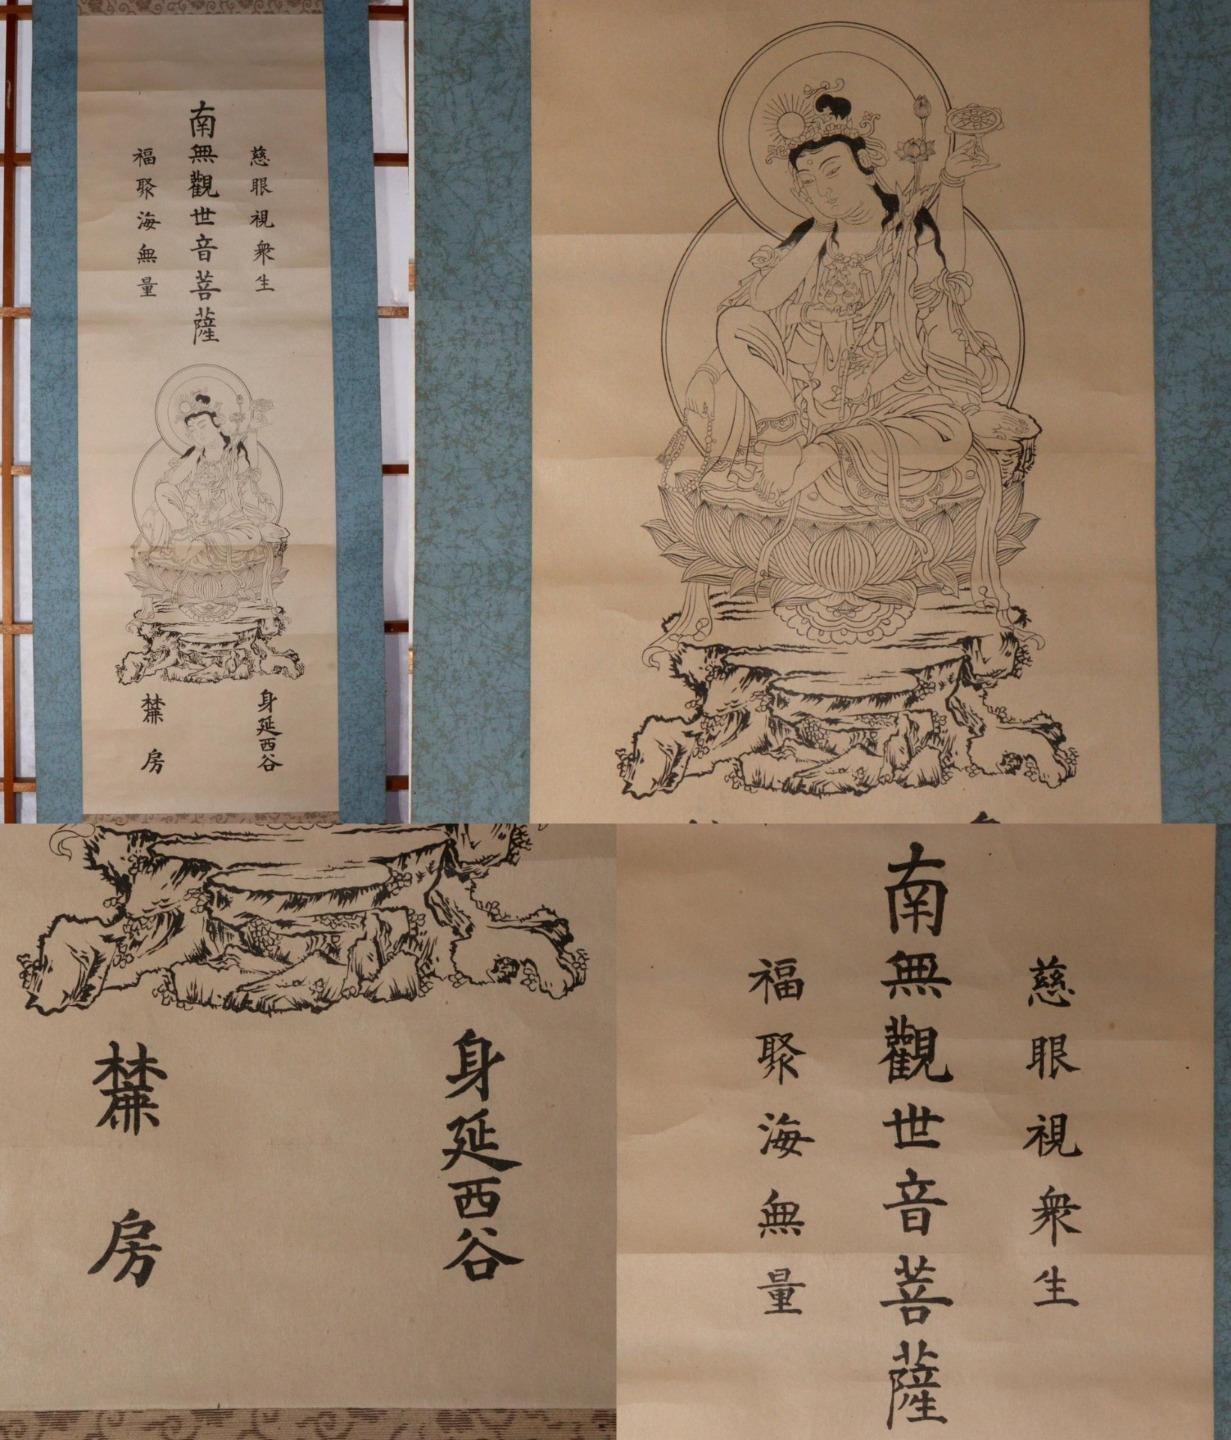 慈眼視衆生
南無觀世音菩薩
福聚海無量
身延西谷
麓房
慈眼視衆生
南無觀世音菩薩
福聚海無量
身延西谷